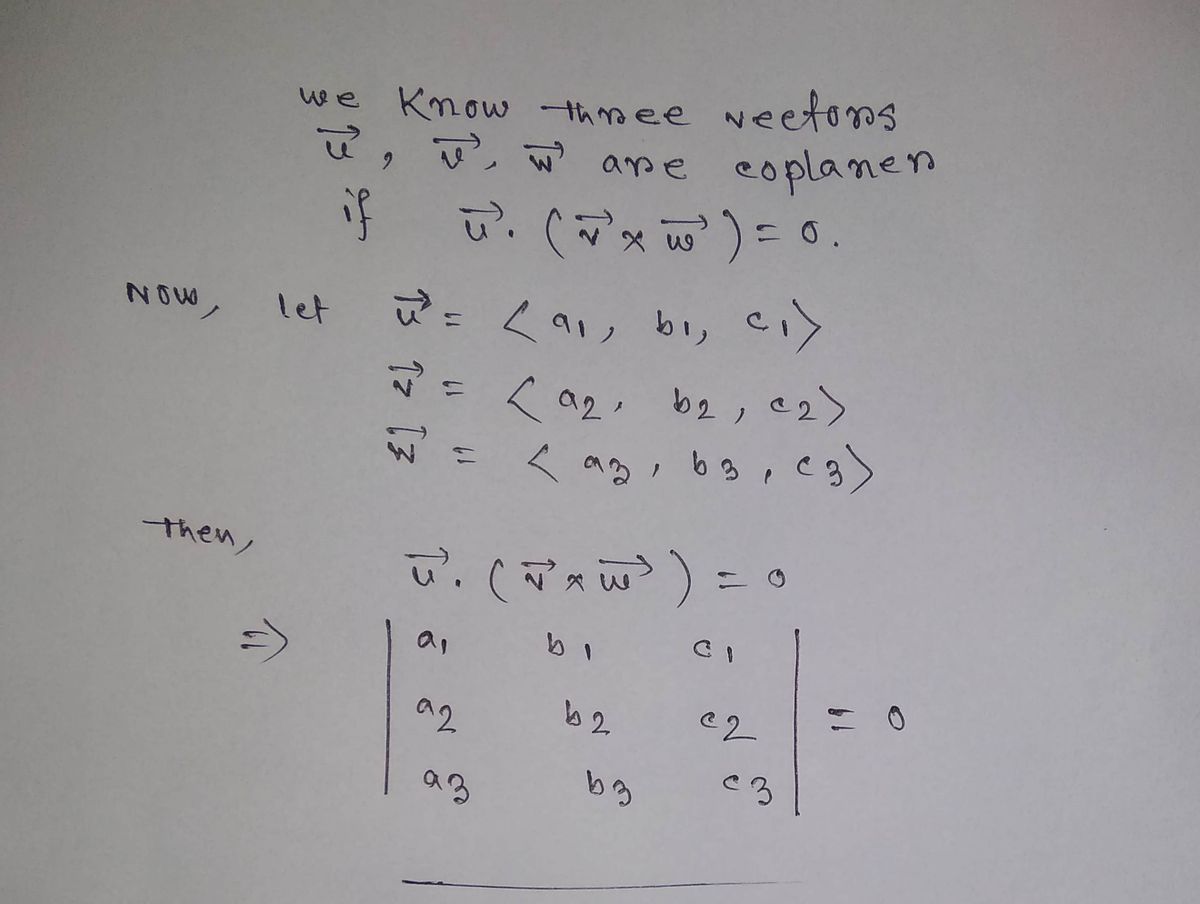 we know three vectors
u⃗, v⃗, w⃗ are coplaner
if u⃗. (v⃗ × w⃗) = 0.
Now, let u⃗ = < a1, b1, c1>
v⃗ = < a2, b2, c2>
w⃗ = < a3, b3, c3>
Then,
u⃗. (v⃗ × w⃗) = 0
=> | a1 b1 c1 |
| a2 b2 c2 | = 0
| a3 b3 c3 |